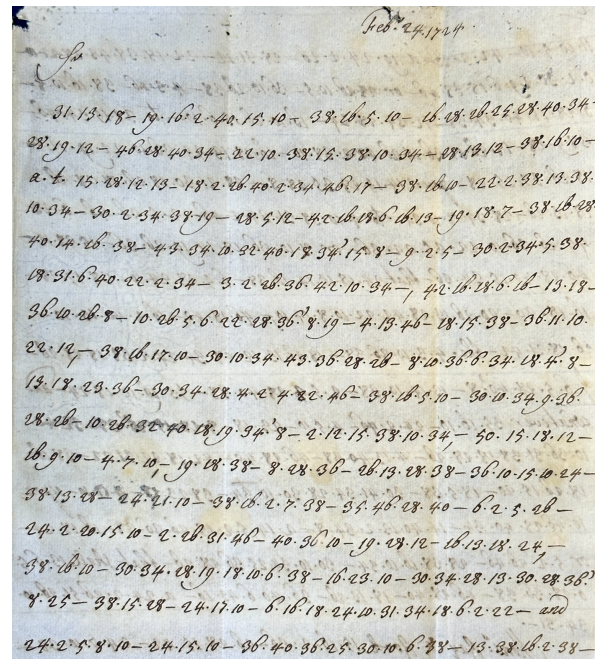 Feb: 24. 1724
Sr
31·13·18– 19·16·2·40·15·10– 38·16·5·10– 16·28·26·25·28·40·34–
28·19·12– 46·28·40·34– 22·10·38·15·38·10·34– 28·13·12– 38·16·10–
a·t· 15·28·12·13– 18·2·26·40·2·34·46·17– 38·16·10– 22·2·38·13·38·
10·34– 30·2·34·38·19– 28·5·12– 42·16·18·6·16·13– 19·18·7– 38·16·28·
40·14·16·38– 43·34·10·32·40·18·34'·15·8– 9·2·5– 30·2·34·5·38·
18·31·6·40·22·2·34– 3·2·26·36·42·10·34–, 42·16·18·6·16– 13·18–
36·10·26·8– 10·26·5·6·22·28·36'·8·19– 4·13·46– 18·15·38– 36·11·10·
22·12, – 38·16·17·10– 30·10·34·43·36·28·26– 8·10·36·6·34·18·4'·8–
13·18·23·36– 30·34·28·4·2·4·22·46– 38·16·5·10– 30·10·34·9·36·
28·26– 10·26·32·40·18·19·34'·8– 2·12·15·38·10·34,– 50·15·18·12–
16·9·10– 4·7·10–, 19·18·38– 8·28·36– 26·13·28·38– 36·10·15·10·24–
38·13·28– 24·21·10– 38·16·2·7·38– 35·46·28·40– 6·2·5·26–
24·2·20·15·10– 2·26·31·46– 40·36·10– 19·28·12– 16·13·18·24,–
38·16·10– 30·34·28·19·18·10·6·38– 16·23·10– 30·34·28·13·30·28·36'
8·25– 38·15·28– 24·17·10– 6·16·18·24·10·31·34·18·6·2·22– and
24·2·5·8·10– 24·15·10– 36·40·36·25·30·10·6·38– 13·38·16·2·38–